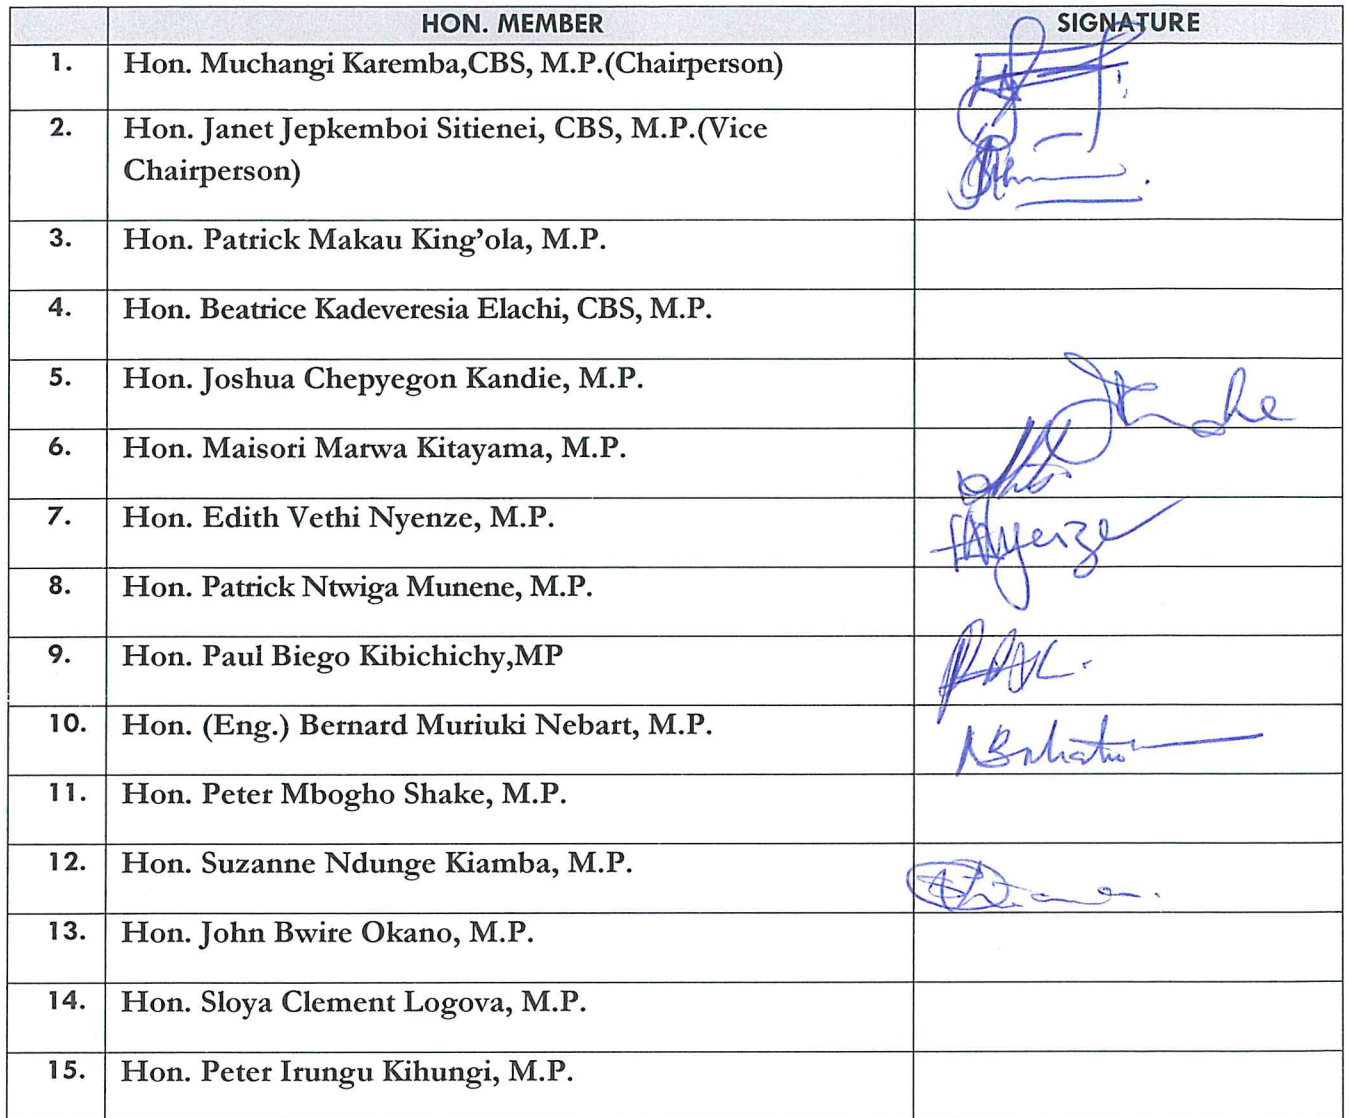 HON. MEMBER SIGNATURE
1. Hon. Muchangi Karemba,CBS, M.P.(Chairperson)
2. Hon. Janet Jepkemboi Sitienei, CBS, M.P.(Vice
Chairperson)
3. Hon. Patrick Makau King’ola, M.P.
4. Hon. Beatrice Kadeveresia Elachi, CBS, M.P.
5. Hon. Joshua Chepyegon Kandie, M.P.
6. Hon. Maisori Marwa Kitayama, M.P.
7. Hon. Edith Vethi Nyenze, M.P.
8. Hon. Patrick Ntwiga Munene, M.P.
9. Hon. Paul Biego Kibichichy,MP
10. Hon. (Eng.) Bernard Muriuki Nebart, M.P.
11. Hon. Peter Mbogho Shake, M.P.
12. Hon. Suzanne Ndunge Kiamba, M.P.
13. Hon. John Bwire Okano, M.P.
14. Hon. Sloya Clement Logova, M.P.
15. Hon. Peter Irungu Kihungi, M.P.